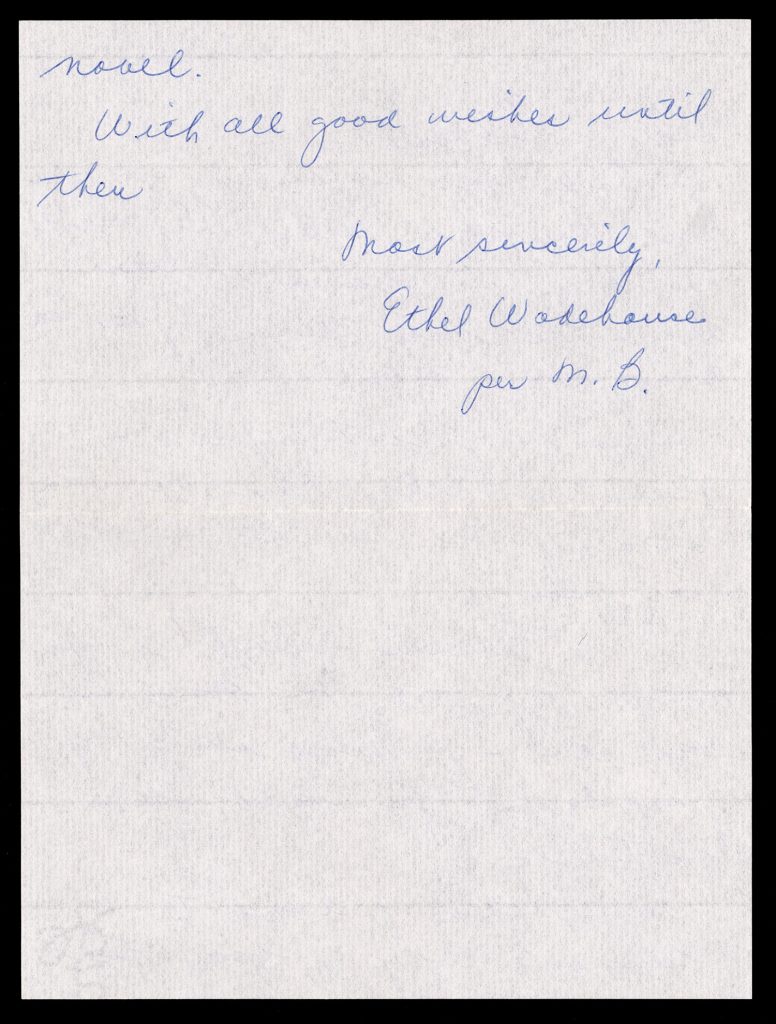 novel.
With all good wishes until
then
Most sincerely,
Ethel Wodehouse
per M. B.